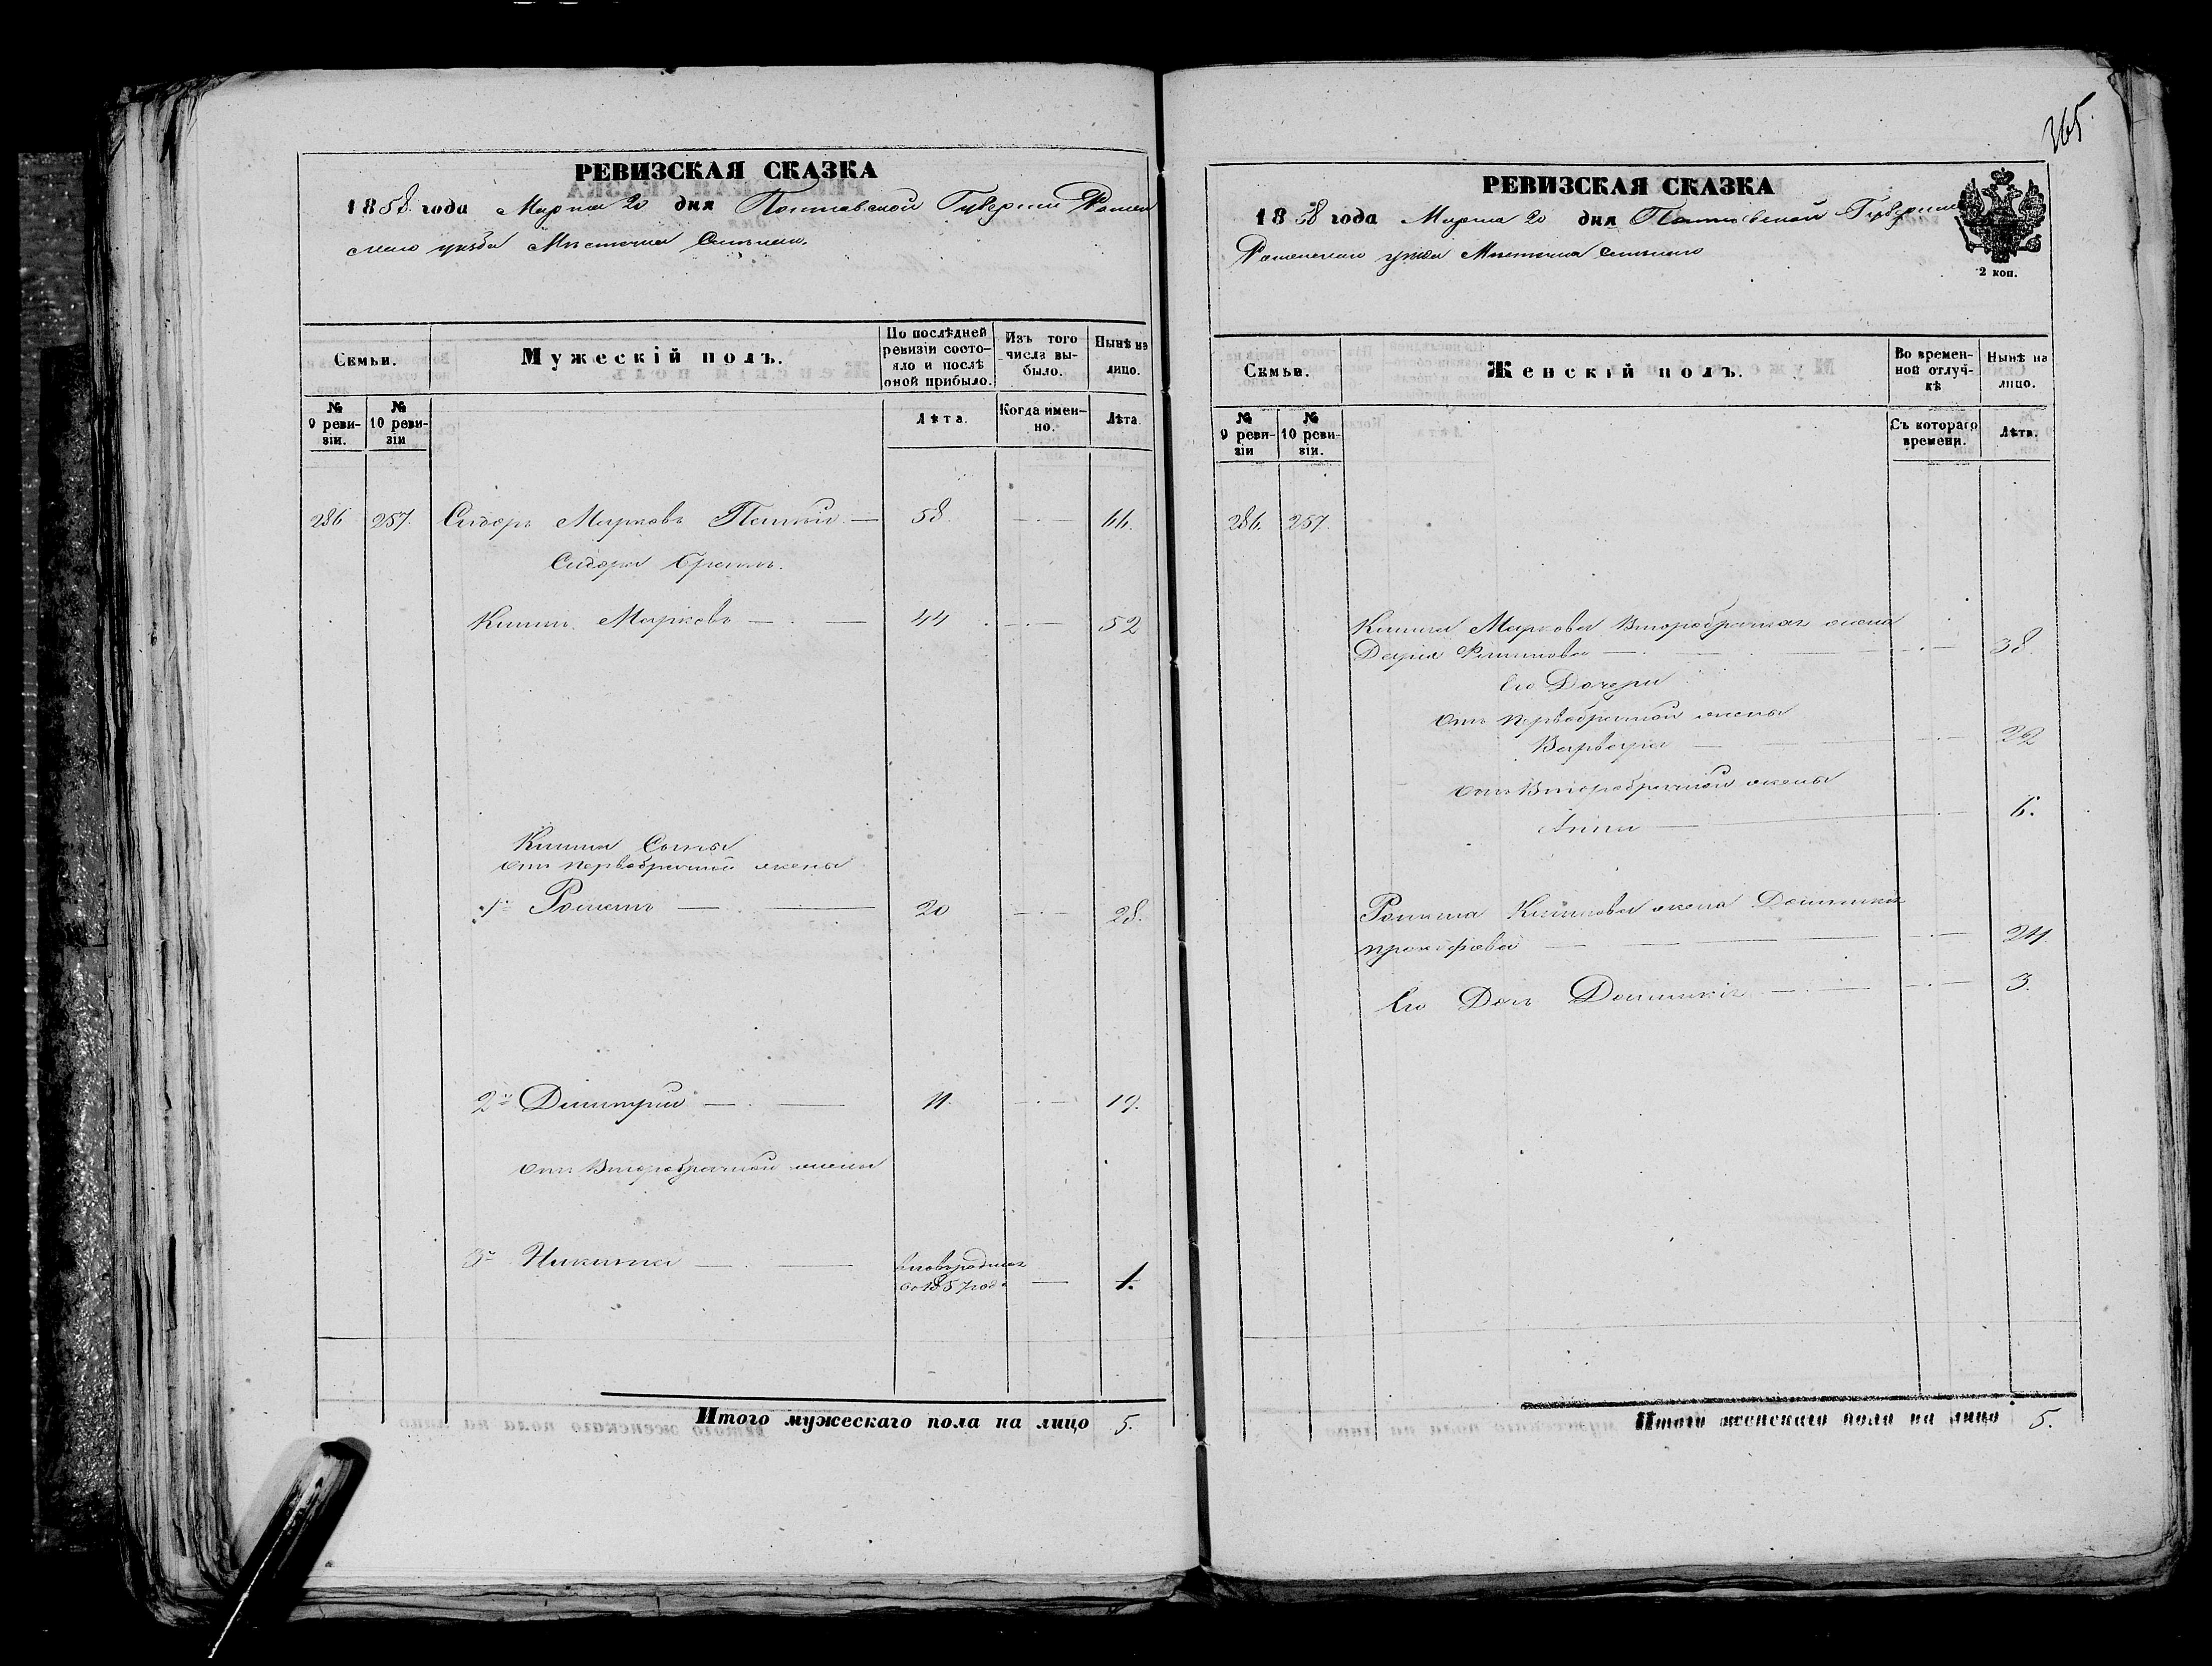 РЕВИЗСКАЯ СКАЗКА
1858 года Марта 20 дня Полтавской Губернии Ромен
скаго уѣзда Мѣстечка
Семьи.
Мужескій полъ.
По послѣдней ревизіи состояло и послѣ оной прибыло.
Изъ того числа выбыло.
Нынѣ на лицо.
№ 9 ревизіи.
№ 10 ревизіи
Лѣта.
Когда именно.
Лѣта
286 257. Сидоръ Марковъ 58. — 66.
Сидора Братъ
Марковъ — 44 — 52
Сыны
отъ первобрачной жены
1й Романъ — 20 — 28.
2й Димитрій — 11. — 19.
отъ Второбрачной жены
3й Никита — вновьродился
въ 1857 году — 1.
Итого мужескаго пола на лицо 5.
365.
РЕВИЗСКАЯ СКАЗКА
1858 года Марта 20 дня Полтавской Губерніи
Роменскаго уѣзда Мѣстечка
2 коп.
Семьи.
Женскій полъ.
Во временной отлучкѣ
Нынѣ на лицо.
№ 9 ревизіи
№ 10 ревизіи.
Съ котораго времени.
Лѣта.
286. 257.
Маркова Второбрачная жена
Дарія — 38.
Его Дочери
отъ первобрачной жены
Варвара — 22
отъ Второбрачной жены
Анна — 6.
Романа жена Домникія
Прокофіева — 24.
Его Дочь Домникія — 3.
Итого женскаго пола на лицо 5.